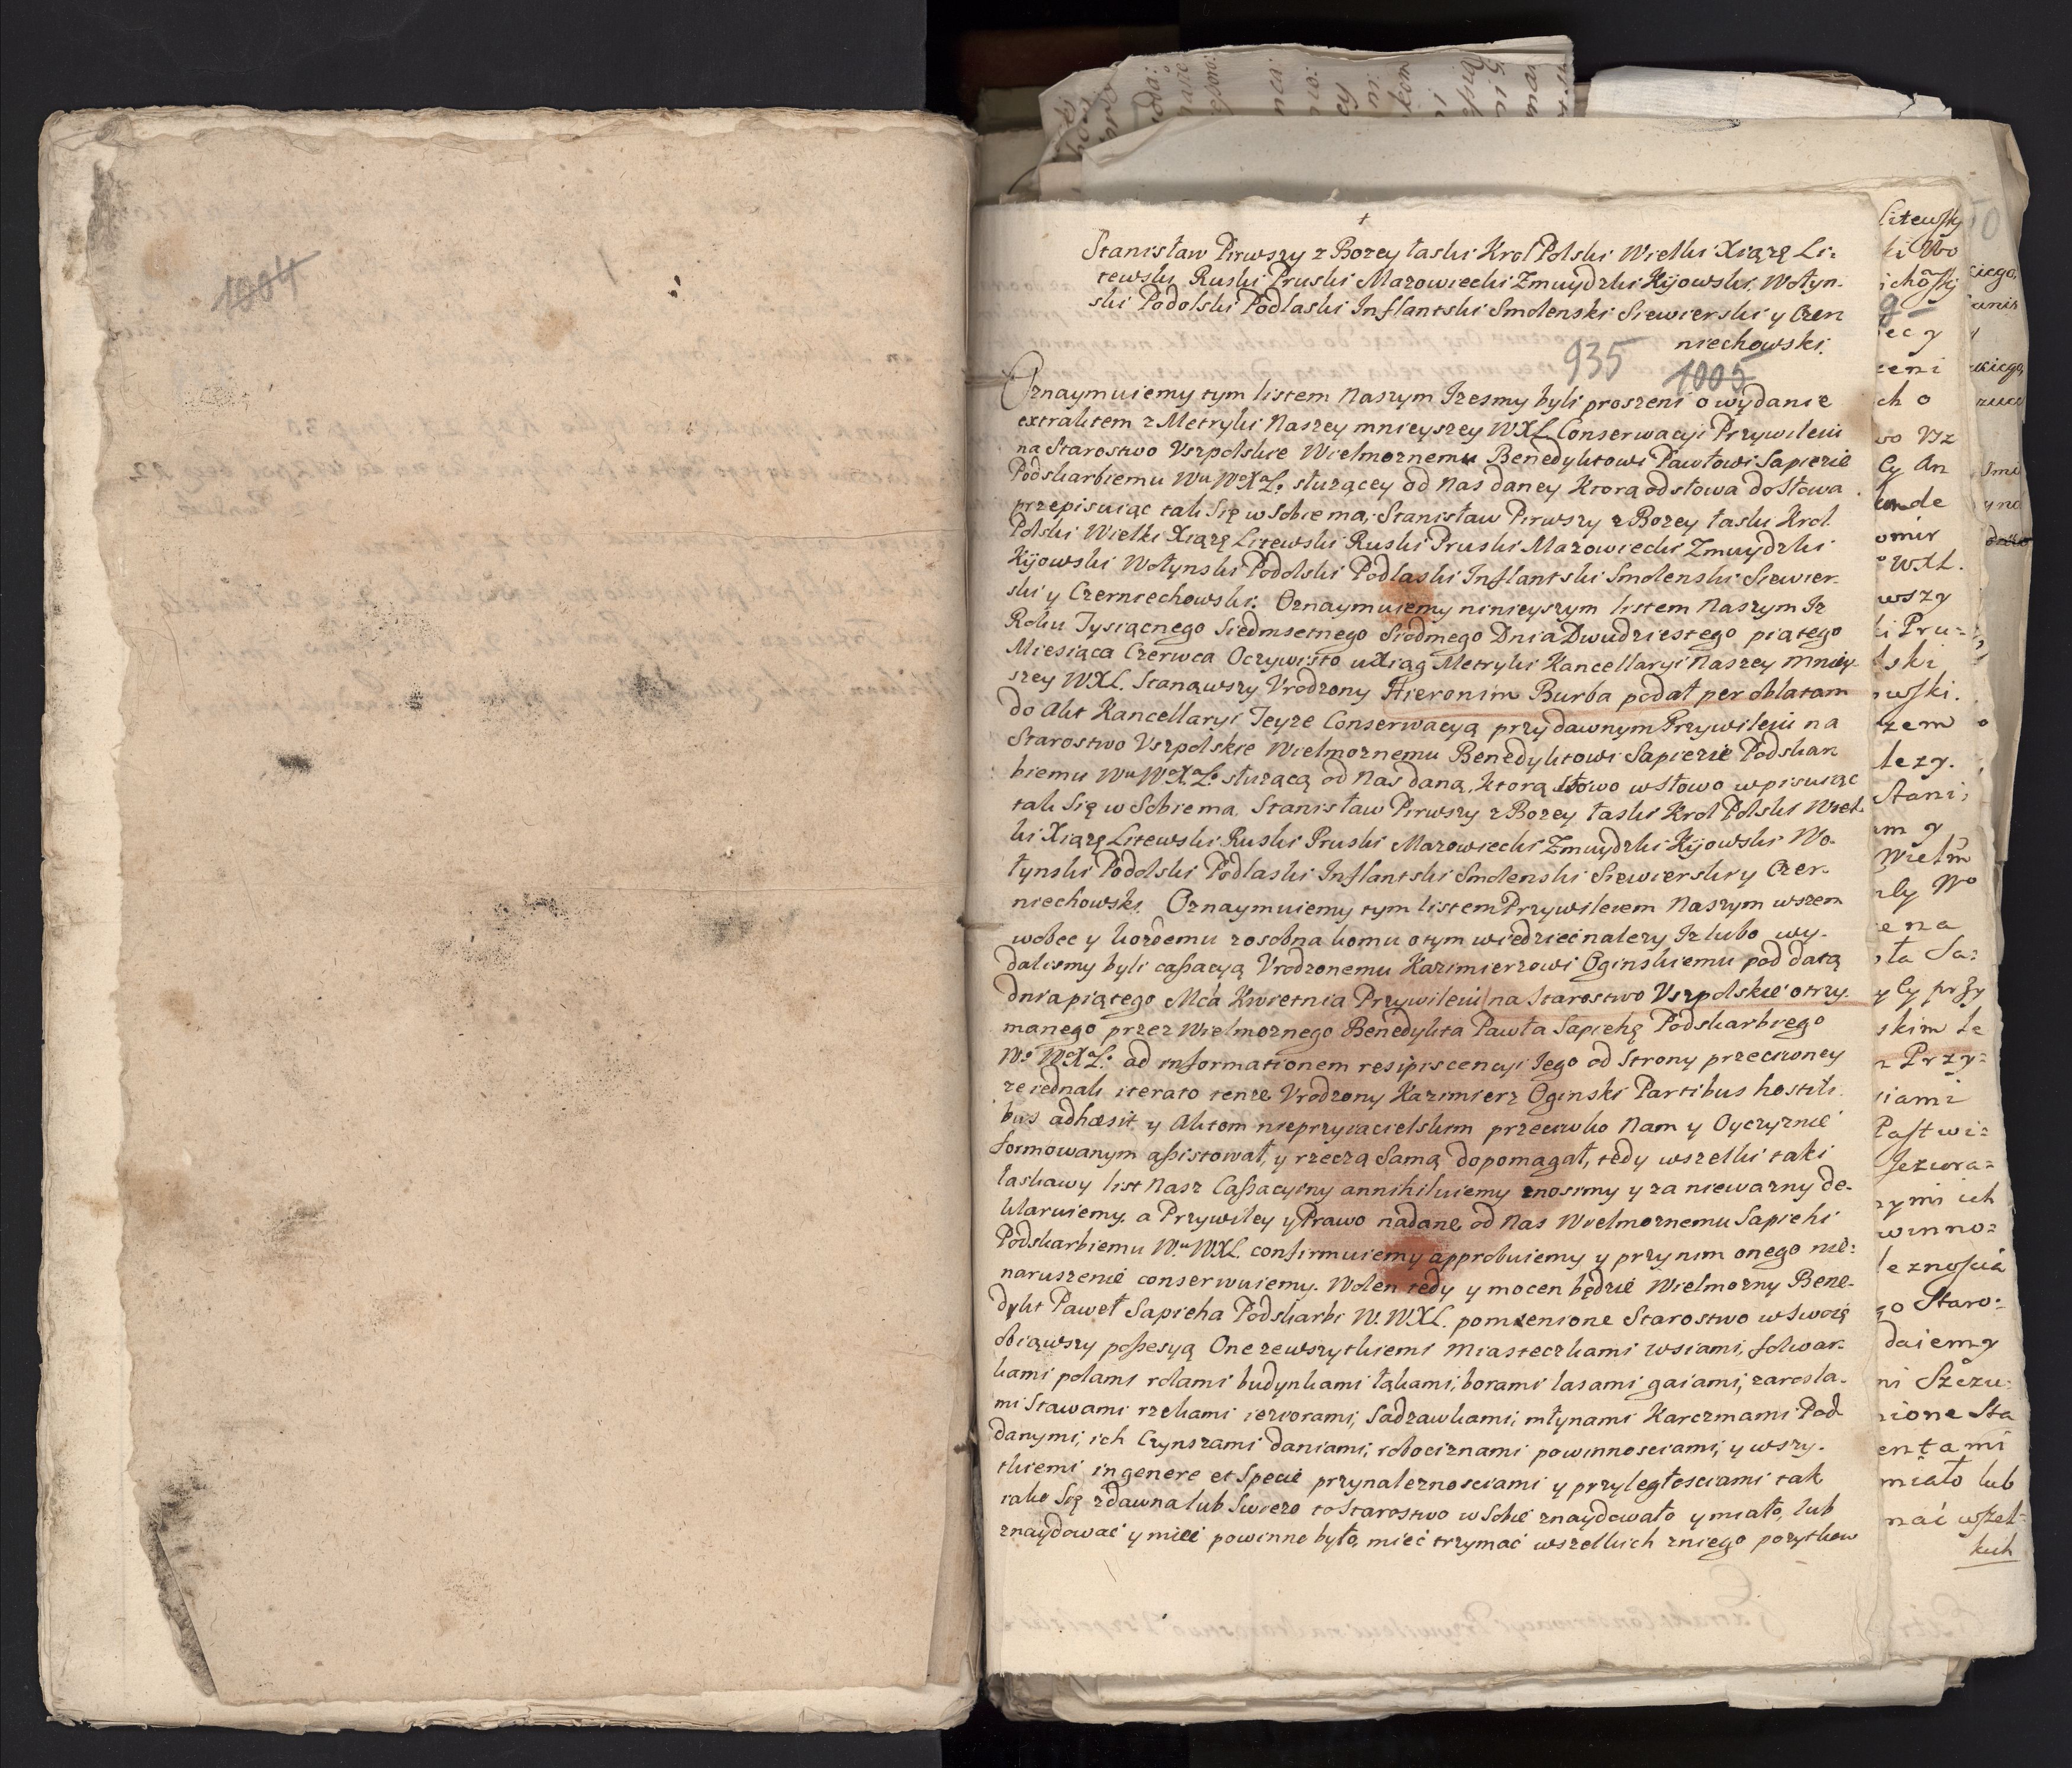 1004
Stanisław Pirwszy z Bozey łaski Krol Polski Wielki Xiązę Li:
tewski, Ruski Pruski Mazowiecki Zmuydzki Kijowski, Wołyn-
ski Podolski Podlaski Inflantski Smolenski Siewierski y Czer
niechowski.
935 1005
Oznaymuiemy tym listem Naszym Izesmy byli proszeni o wydanie
extraktem z Metryki Naszey mnieyszey WXL Conserwacyi Przywileiu
na Starostwo Vszpolskie Wielmoznemu Benedyktowi Pawłowi Sapiezie
Podskarbiemu Wu WoXoLo słuzącey od Nas daney Ktorą od słowa do słowa
przepisuiąc tak się w sobie ma; Stanisław Pirwszy z Bozey łaski Krol
Polski Wielki Xiązę Litewski Ruski Pruski Mazowiecki Zmuydzki
Kijowski Wołynski Podolski Podlaski Inflantski Smolenski Siewier-
ski y Czerniechowski. Oznaymuiemy ninieyszym listem Naszym Iz
Roku Tysiącnego Siedmsetnego Siodmego Dnia Dwudziestego piątego
Miesiąca Czerwca Oczywisto u Xiąg Metryki Kancellaryi Naszey mniey-
szey WXL. Stanąwszy Vrodzony Hieronim Burba podał per oblatam
do Akt Kancellaryi Teyze Conserwacyą przy dawnym Przywileiu na
Starostwo Vszpolskie Wielmoznemu Benedyktowi Sapiezie Podskar
biemu Wu WoXoLo słuzącą od Nas daną, ktorą słowo w słowo wpisuiąc
tak się w Sobie ma, Stanisław Pirwszy z Bozey łaski Krol Polski Wiel-
ki Xiązę Litewski Ruski Pruski Mazowiecki Zmuydzki Kijowski Wo-
łynski Podolski Podlaski Inflantski Smolenski Siewierski y Czer-
niechowski. Oznaymuiemy tym listem Przywileiem Naszym wszem
wobec y kozdemu zosobna komu o tym wiedzieć nalezy Iz lubo wy-
dalismy byli cassacyą Vrodzonemu Kazimierzowi Oginskiemu pod datą
dnia piątego Mca Kwietnia Przywileiu na Starostwo Vszpolskie otrzy-
manego przez Wielmoznego Benedykta Pawła Sapiehę Podskarbiego
Wo WoXoLo ad informationem resipiscencyi Iego od Strony przeciwney
ze iednak iterato tenze Vrodzony Kazimierz Oginski Partibus hostili
bus adhæsit y Aktom nieprzyiacielskim przeciwko Nam y Oyczyznie
formowanym assistował, y rzeczą Samą dopomagał, tedy wszelki taki
łaskawy list Nasz Cassacyiny annihiluiemy znosimy y za niewazny de-
klaruiemy. a Przywiley y Prawo nadane od Nas Wielmoznemu Sapiehi
Podskarbiemu Wu WXL. confirmuiemy approbuiemy y przy nim onego nie:
naruszenie conserwuiemy. Wolen tedy y mocen będzie Wielmozny Bene-
dykt Paweł Sapieha Podskarbi W. WXL. pomienione Starostwo w Swoię
obiąwszy possesyą One ze wszytkiemi Miasteczkami wsiami, folwar-
kami polami rolami budynkami łąkami, borami lasami gaiami, zarosla-
mi Stawami rzekami ieziorami, Sadzawkami, młynami Karczmami Pod
danymi, ich Czynszami daniami, robociznami powinnosciami, y wszy-
tkiemi in genere et Specie przynaleznosciami y przyległosciami tak
iako Się zdawna lub Swiezo to Starostwo w Sobie znaydowało y miało, lub
znaydować y mieć powinno było, mieć trzymać wszelkich zniego pozytkow